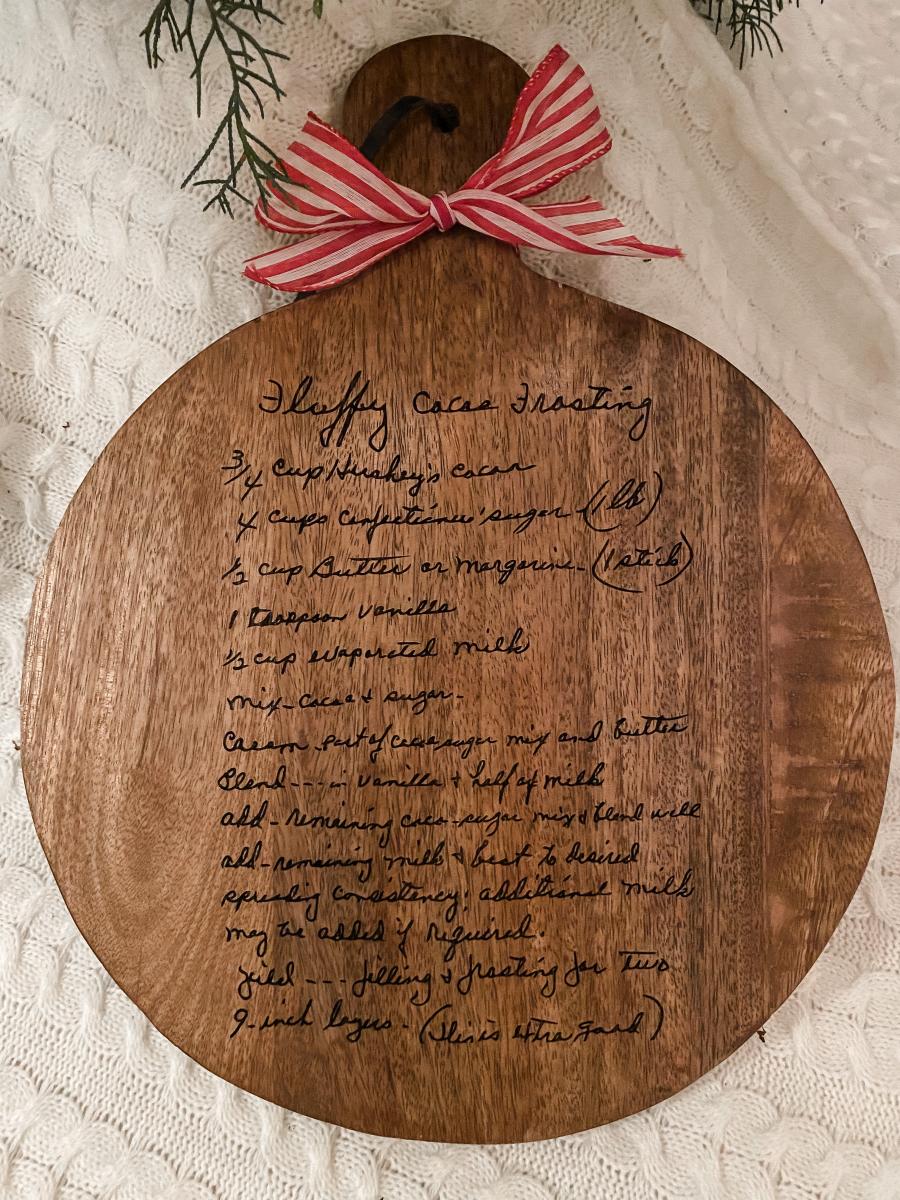 Fluffy Cocoa Frosting
3/4 cup Hershey's cocoa
4 cups confectioners' sugar (1 lb)
1/2 cup Butter or Margarine - (1 stick)
1 teaspoon vanilla
1/2 cup evaporated milk
mix - cocoa & sugar -
Cream part of cocoa sugar mix and butter
Blend --- in vanilla & half of milk
add - remaining coco-sugar mix & blend well
add - remaining milk & beat to desired
spreading consistency; additional milk
may be added if required.
yield --- filling & frosting for two
9-inch layers - (This is extra good)